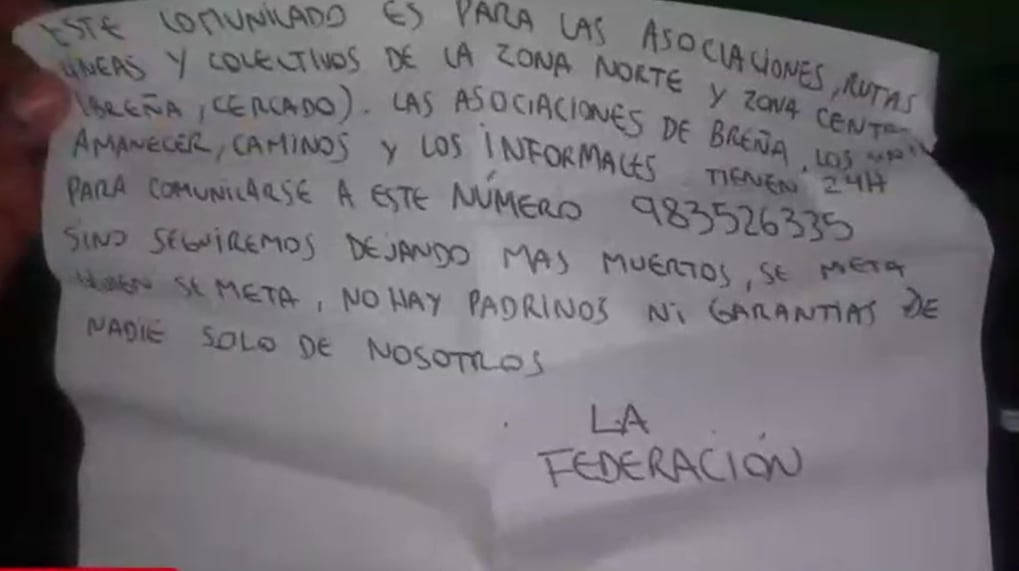 ESTE COMUNICADO ES PARA LAS ASOCIACIONES, RUTAS
LINEAS Y COLECTIVOS DE LA ZONA NORTE Y ZONA CENTR
(BREÑA, CERCADO). LAS ASOCIACIONES DE BREÑA, LOS
AMANECER, CAMINOS Y LOS INFORMALES TIENEN 24H
PARA COMUNICARSE A ESTE NÚMERO 983526335
SINO SEGUIREMOS DEJANDO MAS MUERTOS, SE META
QUIEN SE META, NO HAY PADRINOS NI GARANTIAS DE
NADIE SOLO DE NOSOTROS
LA
FEDERACIÓN